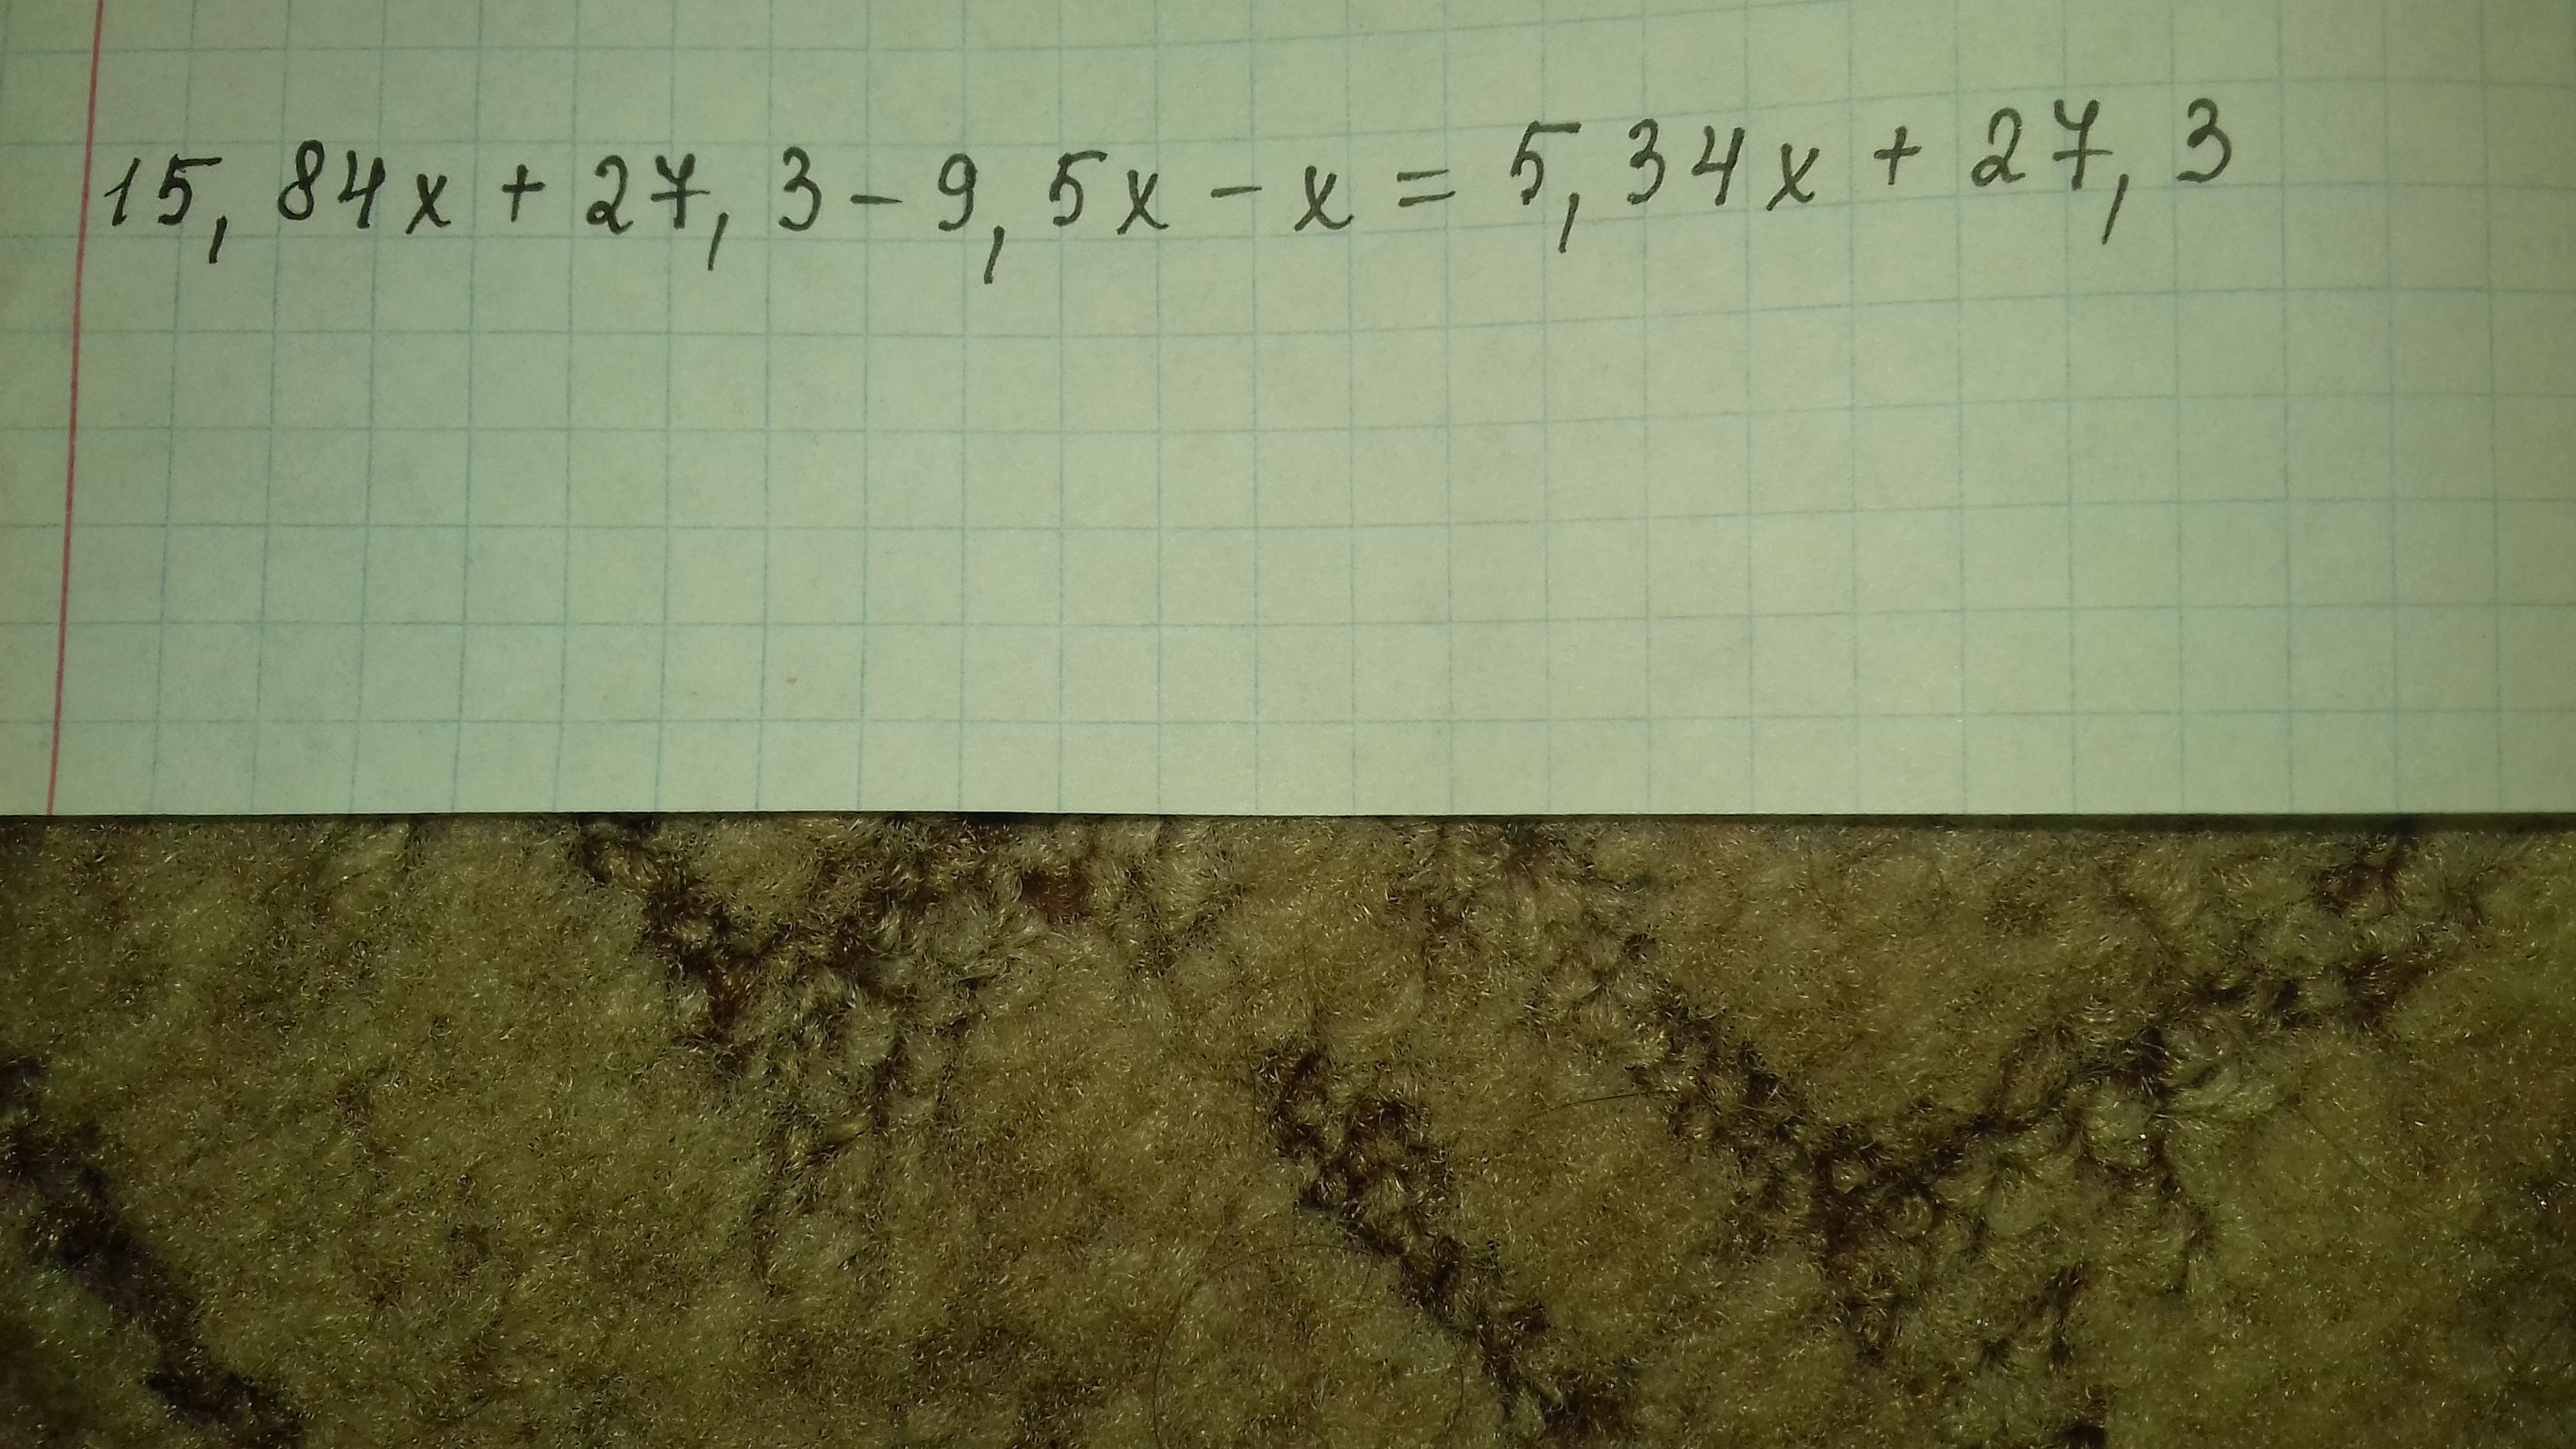 15,84x + 27,3 - 9,5x - x = 5,34x + 27,3